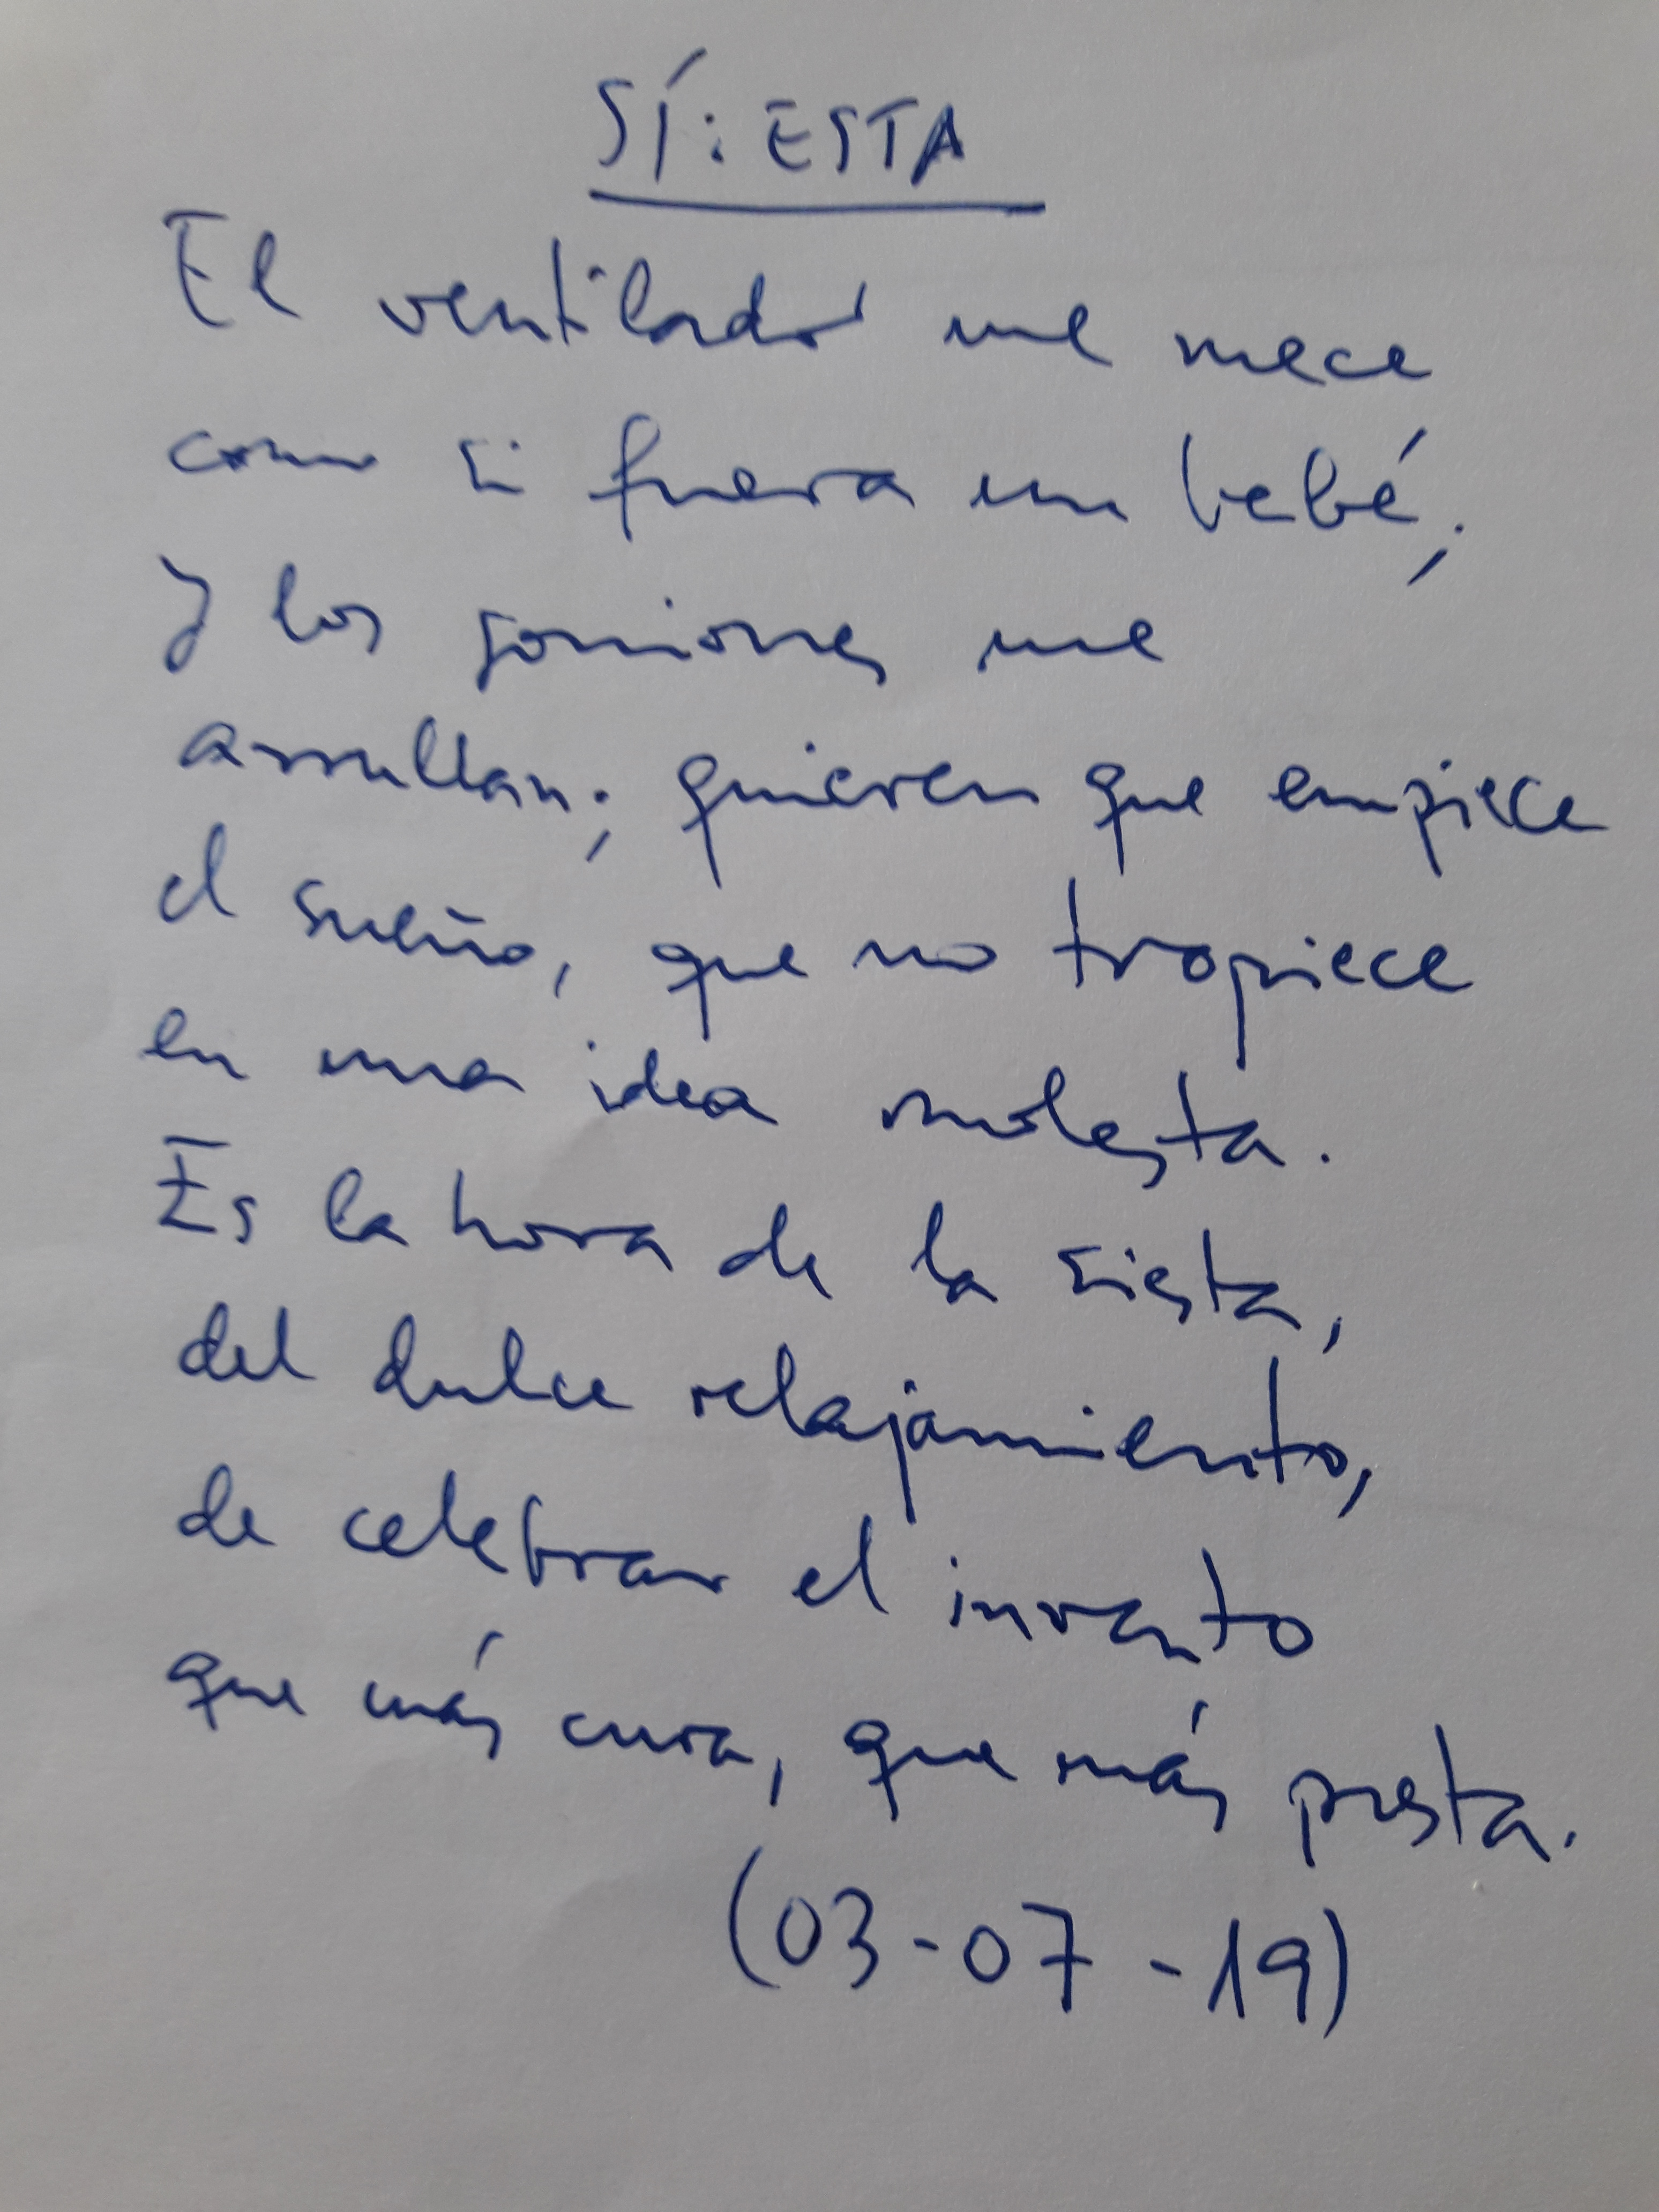 SÍ: ESTA
El ventilador me mece
como si fuera un bebé;
y los gorriones me
arrullan; quieren que empiece
el sueño, que no tropiece
en una idea molesta.
Es la hora de la siesta,
del dulce relajamiento,
de celebrar el invento
que más cura, que más presta.
(03-07-19)